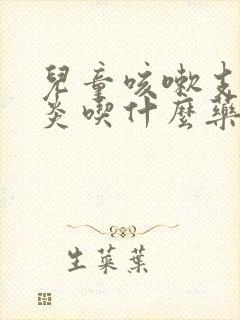 兒童咳嗽支
炎喫什麼藥
生菜葉